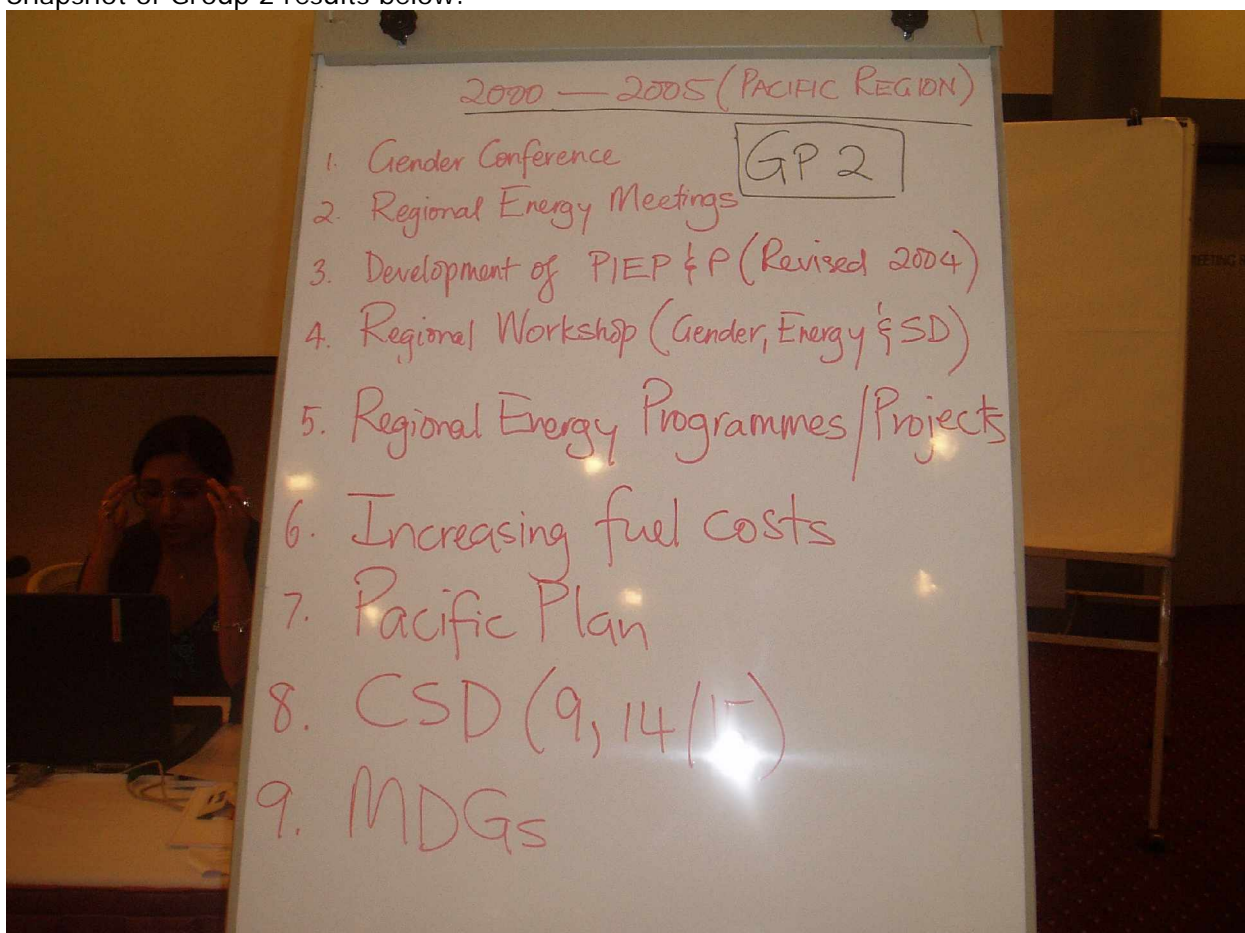 Snapshot of Group 2 results below:
2000 — 2005 (PACIFIC REGION)
GP 2
1. Gender Conference
2. Regional Energy Meetings
3. Development of PIEP & P (Revised 2004)
4. Regional Workshop (Gender, Energy & SD)
5. Regional Energy Programmes/Projects
6. Increasing fuel costs
7. Pacific Plan
8. CSD (9, 14/15)
9. MDGs